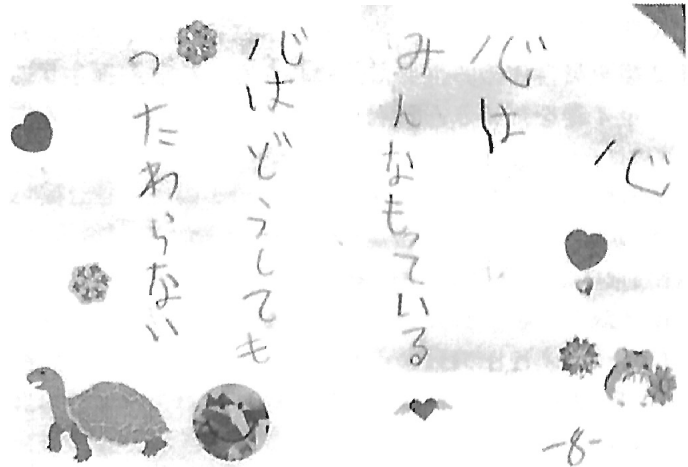 心
心は
みんなもっている
心はどうしても
つたわらない
-8-